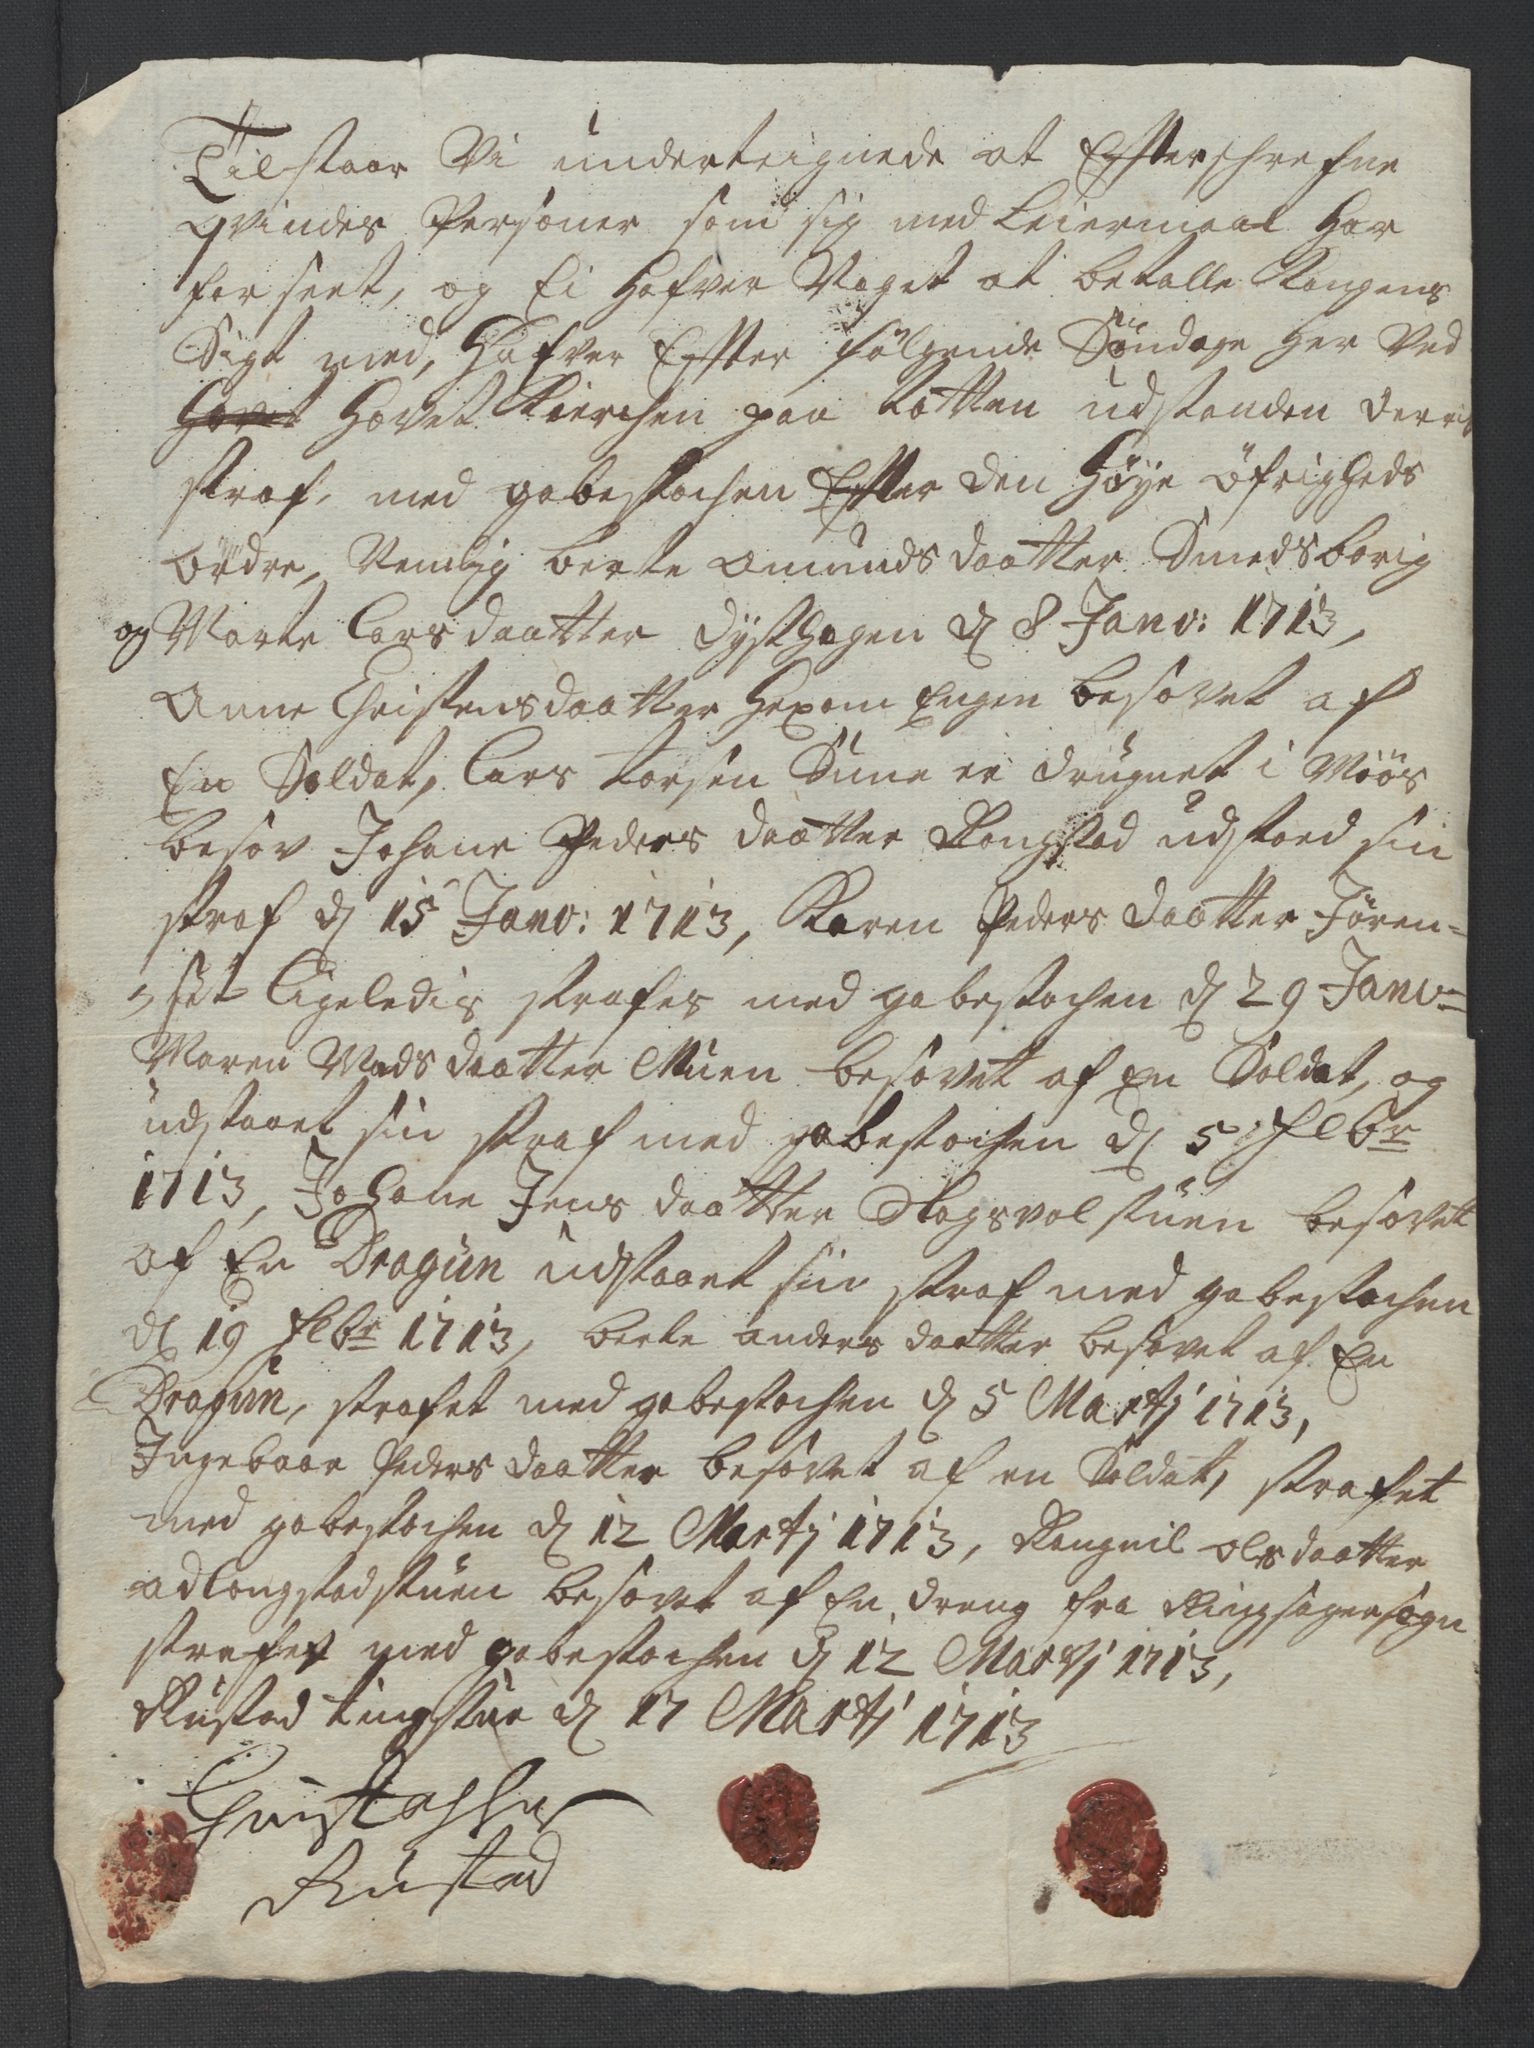 Tilstaar Vi underteignede at Effterschrefne
qvindes Personer som sig med Leiermaal har
forseet, og Ei Hafver Noget at betalle Kongens
Sigt med, Hafver Effter følgende Söndage her Ved
Hovet Hovet Kierchen paa totten udstanden deris
straf, med gabestochen Effter den Høye öfrigheds
ordre, Nemlig berte amunds daatter Smedsborig
og Marte Lars daatter dysthagen d 8 Janv: 1713,
Anne Christens daatter Hexom Engen besovet af
En Soldat, Lars torsen Sune er drugnet i Miøs
besov Johane Peders daatter Rongstad udstoed sin
straf d 15 Janv: 1713, Karen Peders daatter Jøren=
=set ligeledis strafes med gabestochen d 29 Janv=
Maren Mads daatter Muen besovet af en Soldat, og
udstaaet sin straf med gabestochen d 5 Febr
1713, Johane Jens daatter Slagsvol stuen besovet
af En Dragun udstaaet sin straf med gabestochen
d 19 Febr 1713, berte anders daatter besovet af En
Dragun, strafet med gabestochen d 5 Martj 1713,
Ingebaar Peders daatter besovet af en Soldat, strafet
med gabestochen d 12 Martj 1713, Rangnil olsdaatter
adlongstadstuen besovet af En dreng fra Ringsagersogn
strafet med gabestochen d 12 Martj 1713,
Rustad tingstue d 17 Martj 1713
Christopher
Rustad